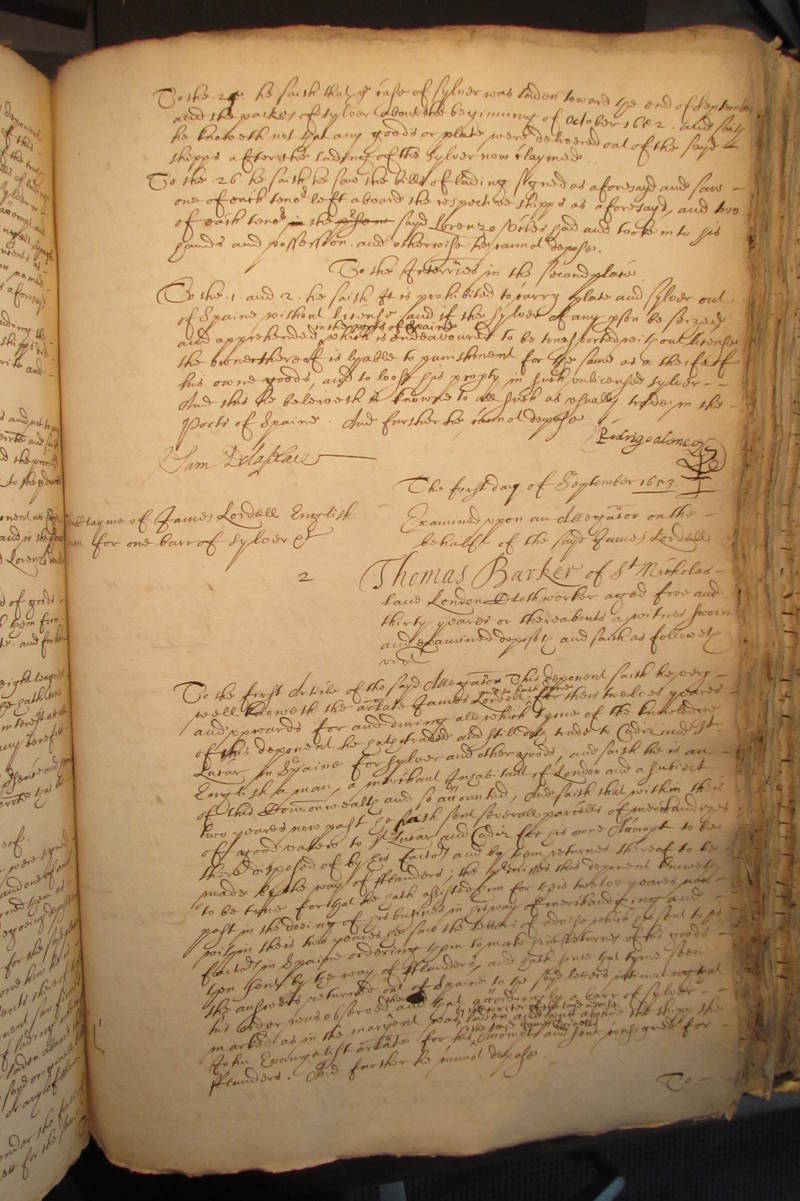 To the .24. he saith that the case of sylver was laden toward the end of September
and the packes of sylver about the beginning of October 1652. and saith
he knoweth not that any goods or plate were delivered out of the sayd
shipps after the lading of the sylver now claymed.
To the .26. he saith he saw the bills of lading signed as aforesayd and saw
one of each teno.r left aboard the respective shipps as aforesayd, and two
of each teno.r in the sayd Lorenzo had and tooke into his
hands and possession. and otherwise he cannot depose.
To the Interries in the second place
To the .1. and 2. he saith It is prohibited to carry plate and sylver out
of Spaine without license and if the sylver of any pson be seized
and apprehended in the ports of Spaine which is endeavoured to be transported without license
the owner thereof is lyable to punishment for the same as a theife of
his owne goods, and to loose his propty in such unlicensed sylver
And this he beleeveth is knowne to all such as usually trade in the
Ports of Spaine. And further he cannot depose.
Sam
The first day of September 1653
clayme of James Lordell English
for one barr of sylver
Examined upon an Allegaton on the
behalfe of the sayd James Lordell
2
Thomas Barker of St Nicholas
lane London Clothworker aged five and
thirty yeares or thereabouts a witnes sworne
and examined deposeth and saith as followeth
vizt
To the first Article of the sayd Allegaton This deponent saith he very
well knoweth the arlate James Lordell and hath done for theis twelve yeares
and upwards for and during all which tyme of the knowledge
of this deponent he hath traded and still doth trade to Cadiz and St
Lucar in Spaine for sylver and other goods, and saith he is an
English man, a merchant Inhabitant of London and a subiect
of this Comonwealth and so accounted, And saith that within theis
two yeares now past he hath sent severall parcells of merchandizes
of a good value to St Lucar and Cadiz for his owne Accompt to be
there disposed of by his Factors and by them returnes thereof to be
made by the way of Flanders; the premisses this deponent knoweth
to be true for that he hath assisted him for theis twelve yeares now
past in the doeing of his busines in his way of merchandizing and
within theis two yeares hee saw the letters of advise which he sent to his
Factors in Spaine ordering them to make returnes of his goods
then sent by the way of Flanders, and hath since that tyme seen
the answers returned out of Spaine to the sayd letters intimating that
his order was observed and that accordingly a barr of sylver
marked as in the margent was laden and putt aboard the shipp the
John Evangelist arlate for his Accompt and consigned for
Flanders. And further he cannot depose
To